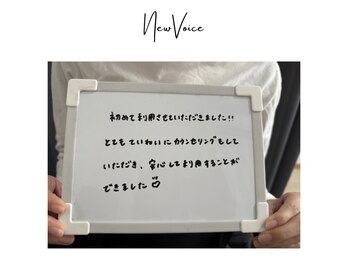 New Voice
初めて利用させていただきました!!
とてもていねいにカウンセリングもして
いただき、安心して利用することが
できました